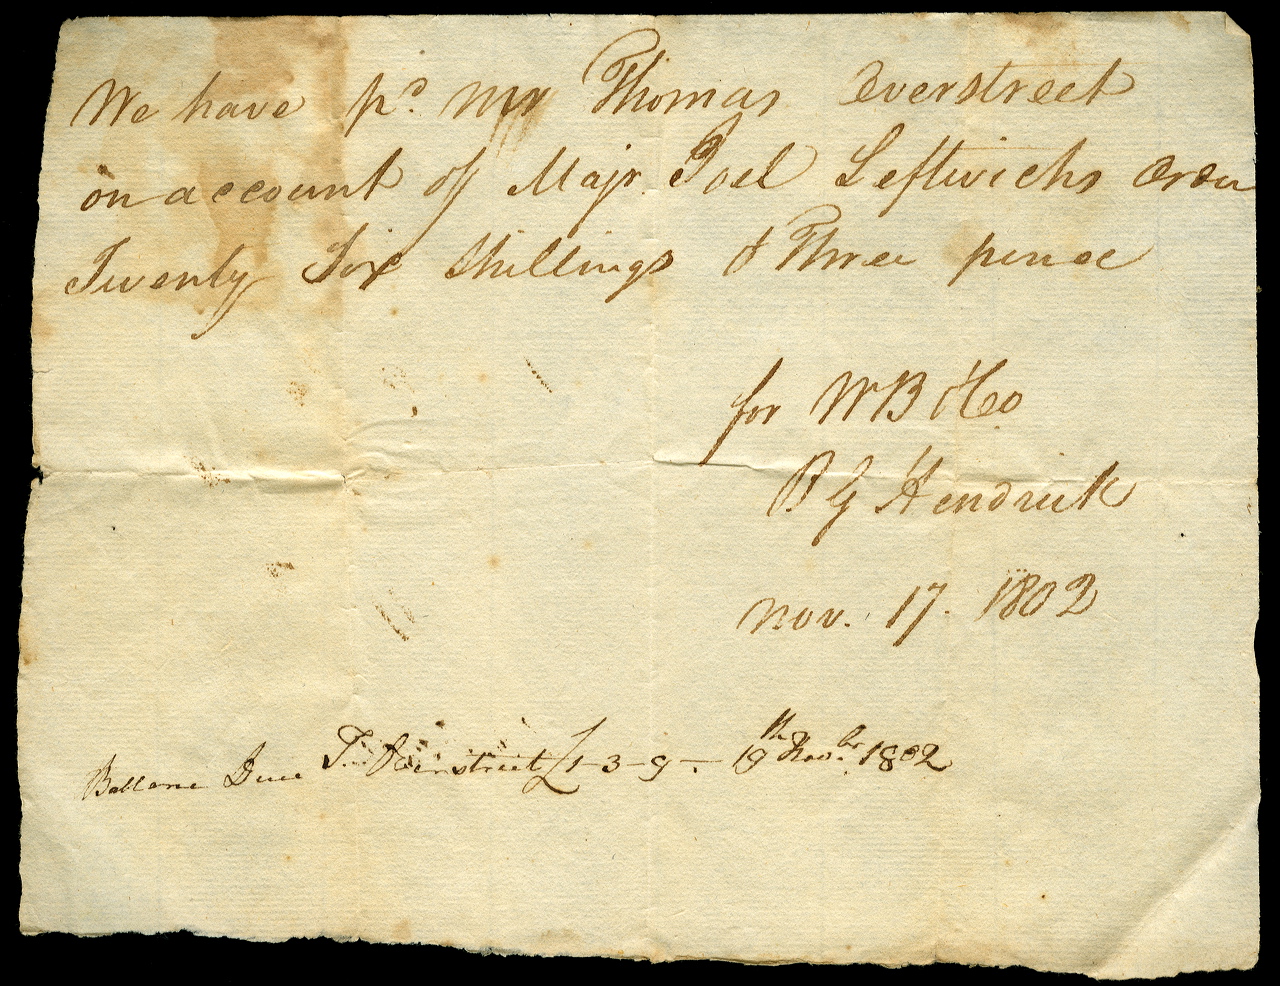 We have pd. Mr Thomas Overstreet
on account of Majr. Joel Leftwichs Order
Twenty Six Shillings & Three pence
for WB & Co
B G Hendrick
Nov. 17. 1802
Ballance Due T. Overstreet £1-3-9 - 19th Novbr. 1802